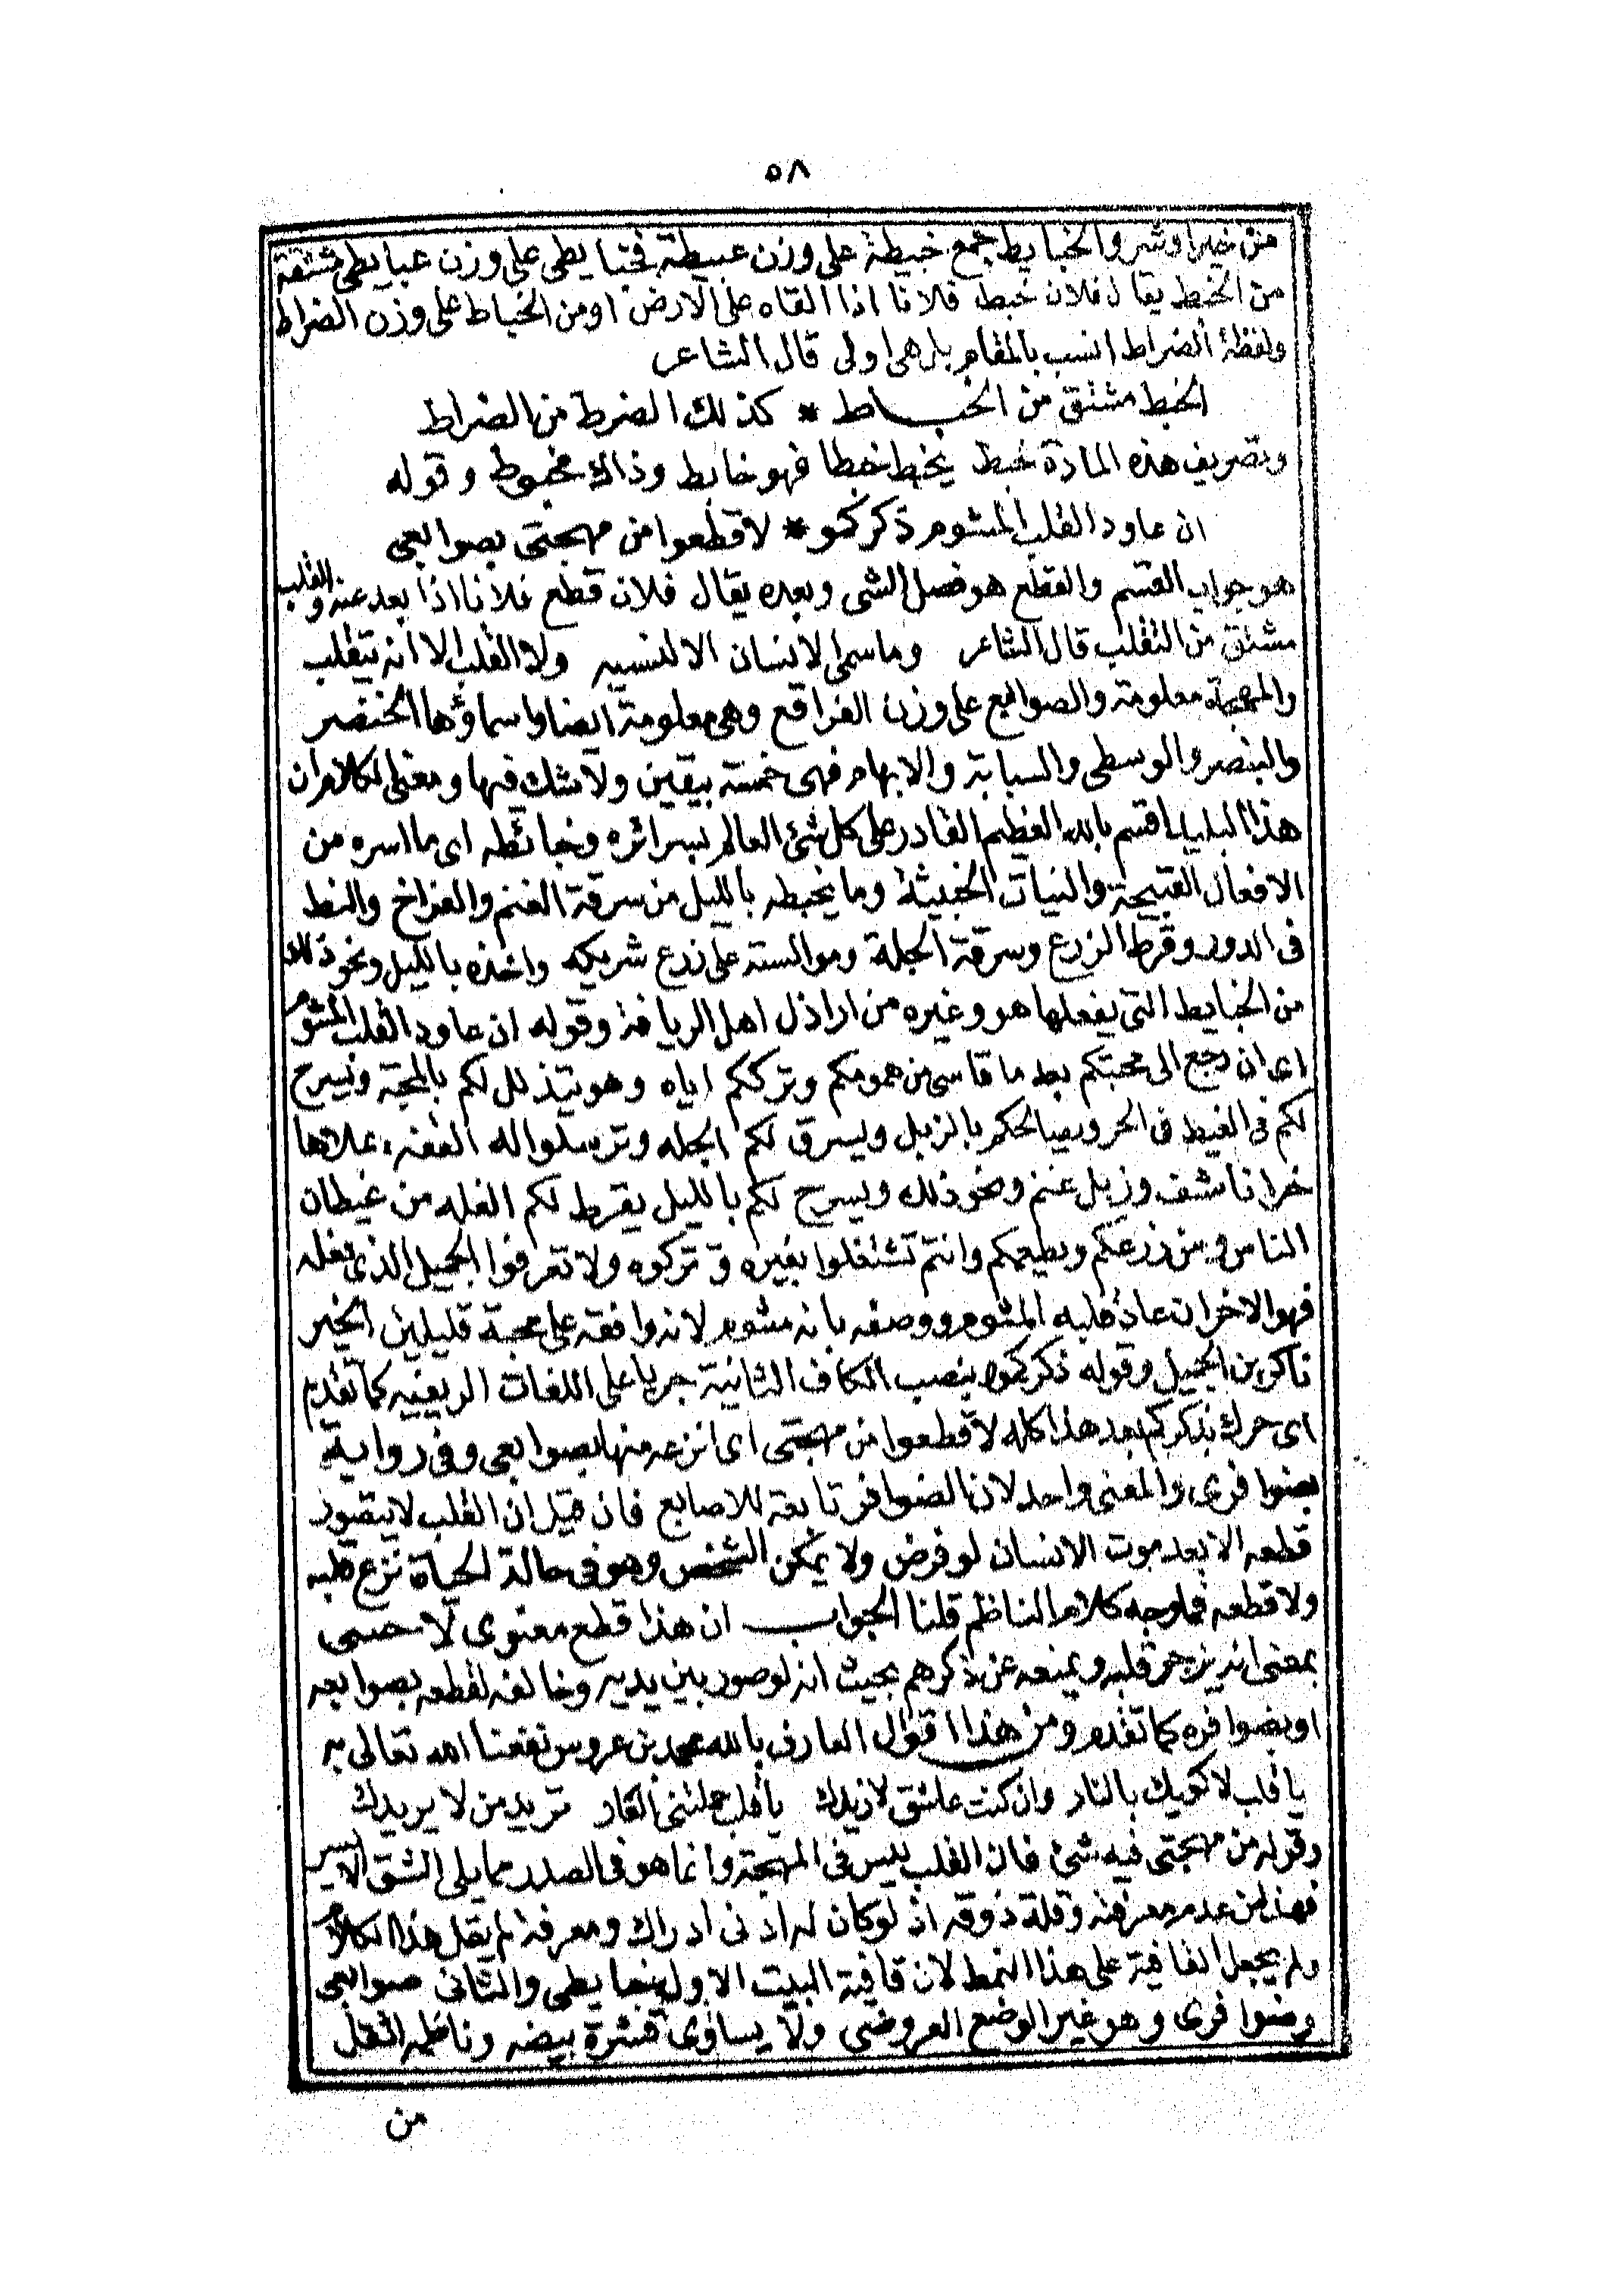 ٥٨
من خير او شر والخبايط جمع خبيطة على وزن عبيطة فخبايطى على وزن عبايطى مشتقة
من الخبط يقال فلان خبط فلانا اذا القاه على الارض او من الخباط على وزن الضراط
ولفظة الضراط انسب بالمقام بل هى اولى قال الشاعر
الخبط مشتق من الخباط * كذلك الضرط من الضراط
وتصريف هذه المادة خبط يخبط خبطا فهو خابط وذاك مخبوط وقوله
ان عاود القلب المشوم ذكركمو * لاقطعوا من مهجتى بصوابعى
هو جواب القسم والقطع هو فصل الشى وبعده يقال فلان قطع فلانا اذا بعد عنه والقلب
مشتق من التقلب قال الشاعر وما سمى الانسان الا لنسيه ولا القلب الا انه يتقلب
والمهجة معلومة والصوابع على وزن الفراقع وهى معلومة ايضا واسماؤها الخنصر
والبنصر والوسطى والسبابة والابهام فهى خمسة بيقين ولا شك فيها ومعنى الكلام ان
هذا البليد اقسم بالله العظيم القادر على كل شئ العالم بسرائره وخبائطه اى ما اسره من
الافعال القبيحة والنيات الخبيثة وما يخبطه بالليل من سرقة الغنم والفراخ والنط
فى الدور وقرط الزرع وسرقة الجلة وموالسته على زرع شريكه واخذه بالليل ونحو ذلك
من الخبايط التى يفعلها هو وغيره من اراذل اهل الريافة وقوله ان عاود القلب المشوم
اى ان رجع الى محبتكم بعد ما قاسى من همومكم وترككم اياه وهو يتذلل لكم بالمحبة ويسرح
لكم فى الغيط فى الحر ويصابحكم بالزبل ويسرق لكم الجله وترسلوا له القفه يملاها
خرا ناشف وزبل غنم ونحو ذلك ويسرح لكم بالليل يقرط لكم الغله من غيطان
الناس ومن زرعكم وبطيحكم وانتم تشتغلوا بغيره وتتركوه ولا تعرفوا الجميل الذى فعله
فهو الاخر ان عاد قلبه المشوم ووصفه بانه مشوم لانه وافقه على محبة قليلين الخير
ناكرين الجميل وقوله ذكركمو بنصب الكاف الثانية جريا على اللغات الريفيه كما تقدم
اى حرك بذكركم بعد هذا كله لاقطعوا من مهجتى اى انزعه منها بصوابعى وفى رواية
بضوافرى والمعنى واحد لان الضوافر تابعة للاصابع فان قيل ان القلب لا يتصور
قطعه الا بعد موت الانسان لو فرض ولا يمكن الشخص وهو فى حالة الحياة نزع قلبه
ولا قطعه فما وجه كلام الناظم قلنا الجواب ان هذا قطع معنوى لا حسى
بمعنى انه يزجر قلبه ويمنعه عن ذكرهم بحيث انه لو صور بين يديه وخالفه لقطعه بصوابعه
او بضوافره كما تقدم ومن هذا اقوال العارف بالله محمد بن عروس نفعنا الله تعالى به
يا قلب لاكويك بالنار وان كنت عاشق لازيدك يا قلب حملتنى العار تريد من لا يريدك
وقوله من مهجتى فيه شئ فان القلب ليس فى المهجة وانما هو فى الصدر مما يلى الشق الايسر
فهذا من عدم معرفته وقلة ذوقه اذ لو كان له ادنى ادراك ومعرفة لم يقل هذا الكلام
ولم يجعل القافية على هذا النمط لان قافية البيت الاول خبايطى والثانى صوابعى
وضوافرى وهو غير الوضع العروضى ولا يساوى قشرة بيضه وناظمه اثقل
من